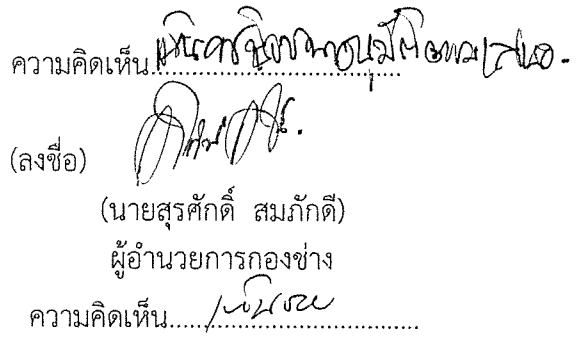 ความคิดเห็น เห็นควรพิจารณาอนุมัติตามเสนอ.
(ลงชื่อ)
(นายสุรศักดิ์ สมภักดี)
ผู้อำนวยการกองช่าง
ความคิดเห็น เห็นชอบ